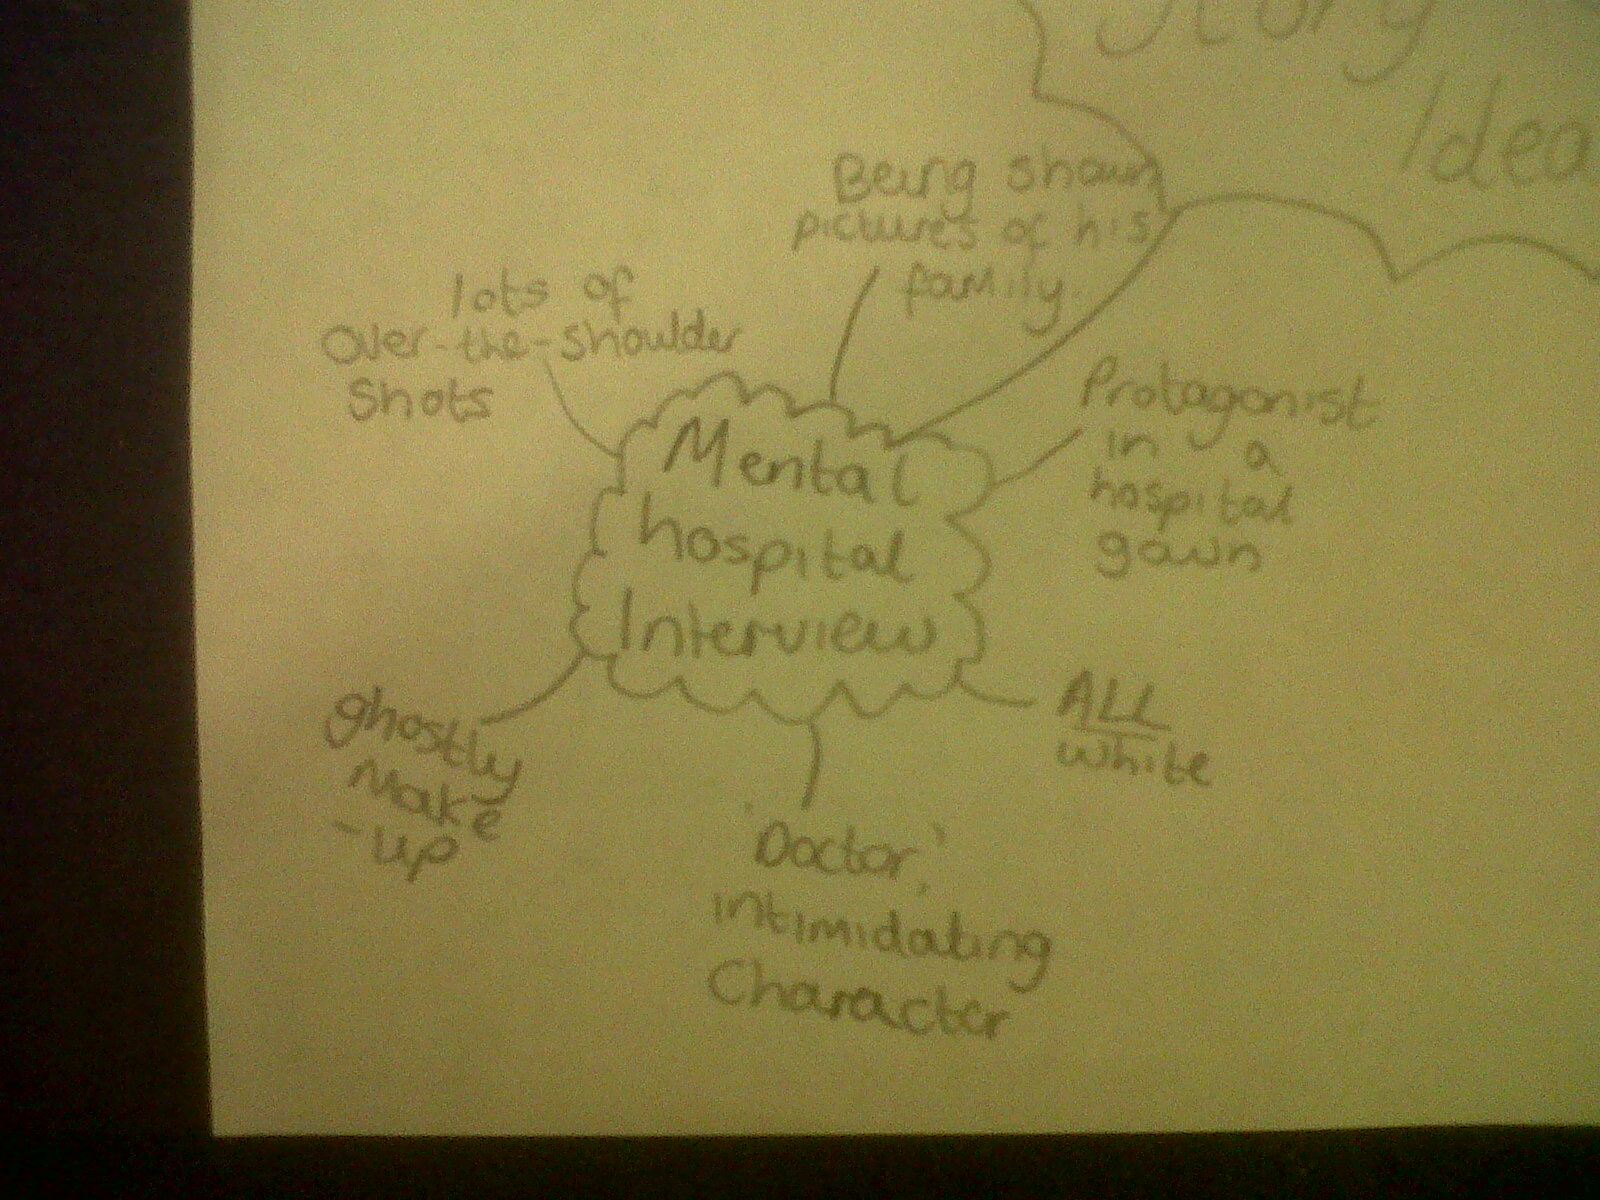 Story
Idea
Being shown
pictures of his
family.
lots of
Over-the-shoulder
shots
Protagonist
in a
hospital
gown
Mental
hospital
Interview
ALL
white
ghostly
Make
-up
'Doctor,'
intimidating
Character